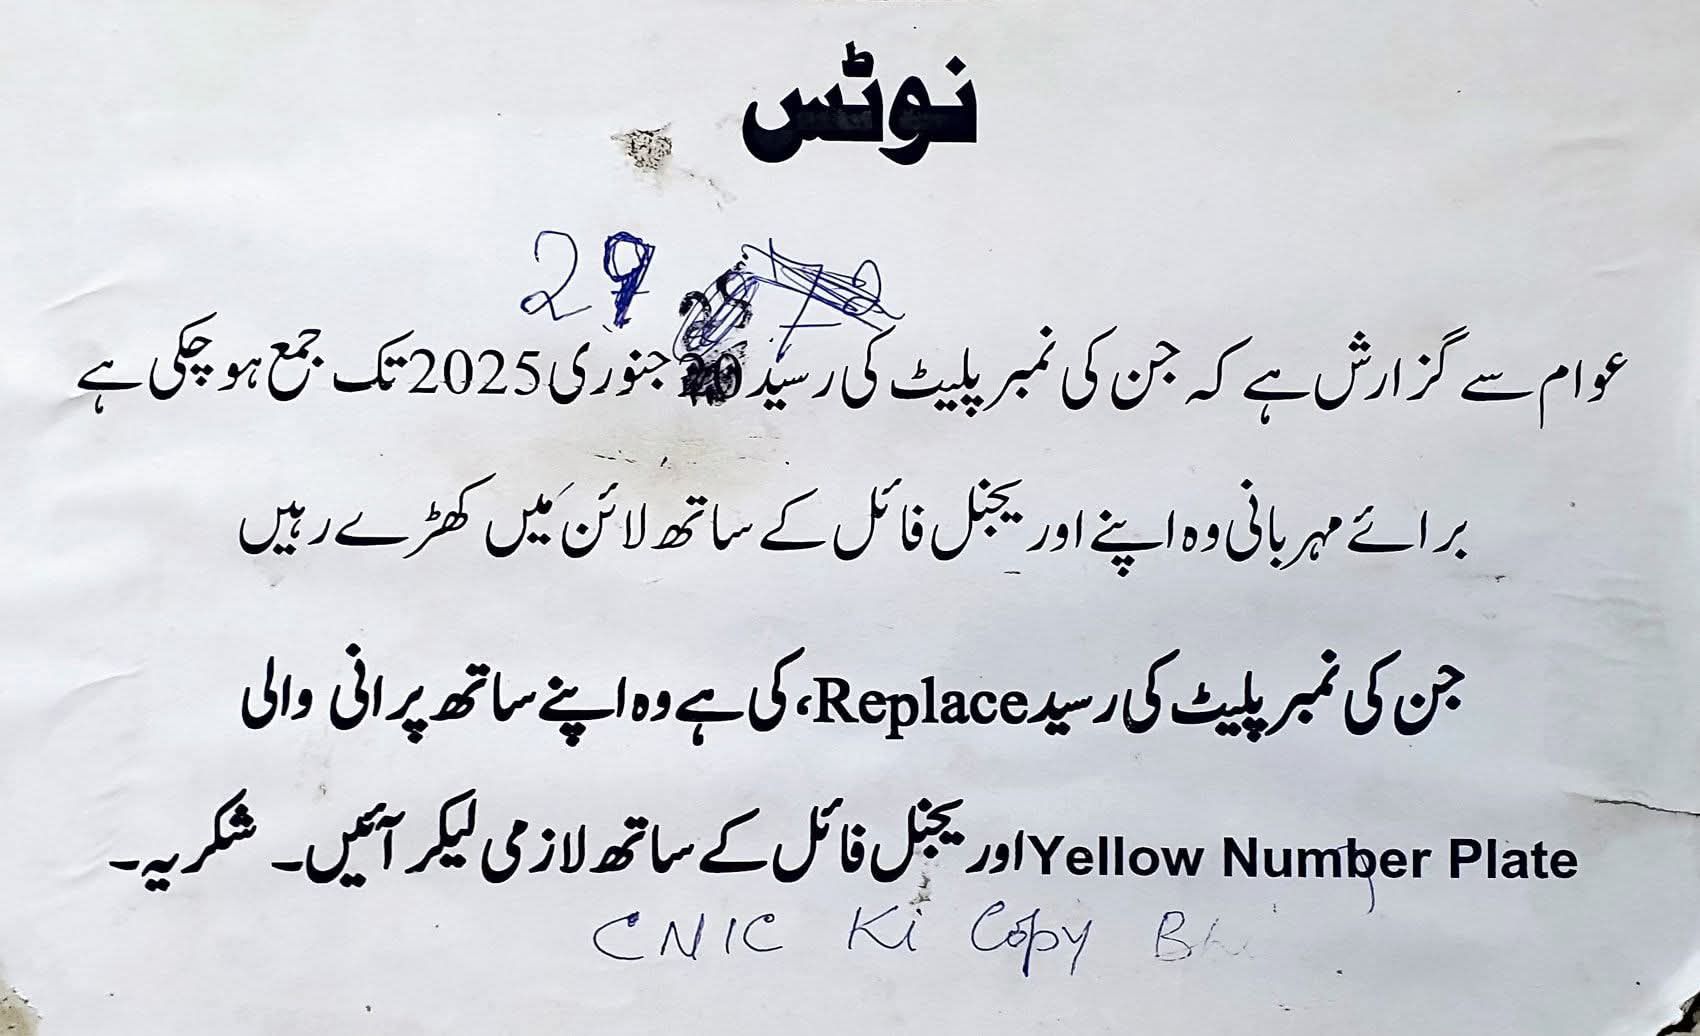 نوٹس
29
عوام سے گزارش ہے کہ جن کی نمبر پلیٹ کی رسید جنوری 2025 تک جمع ہو چکی ہے
برائے مہربانی وہ اپنے اوریجنل فائل کے ساتھ لائن میں کھڑے رہیں
جن کی نمبر پلیٹ کی رسید Replace، کی ہے وہ اپنے ساتھ پرانی والی
Yellow Number Plate اوریجنل فائل کے ساتھ لازمی لیکر آئیں۔ شکریہ۔
CNIC Ki Copy Bhi